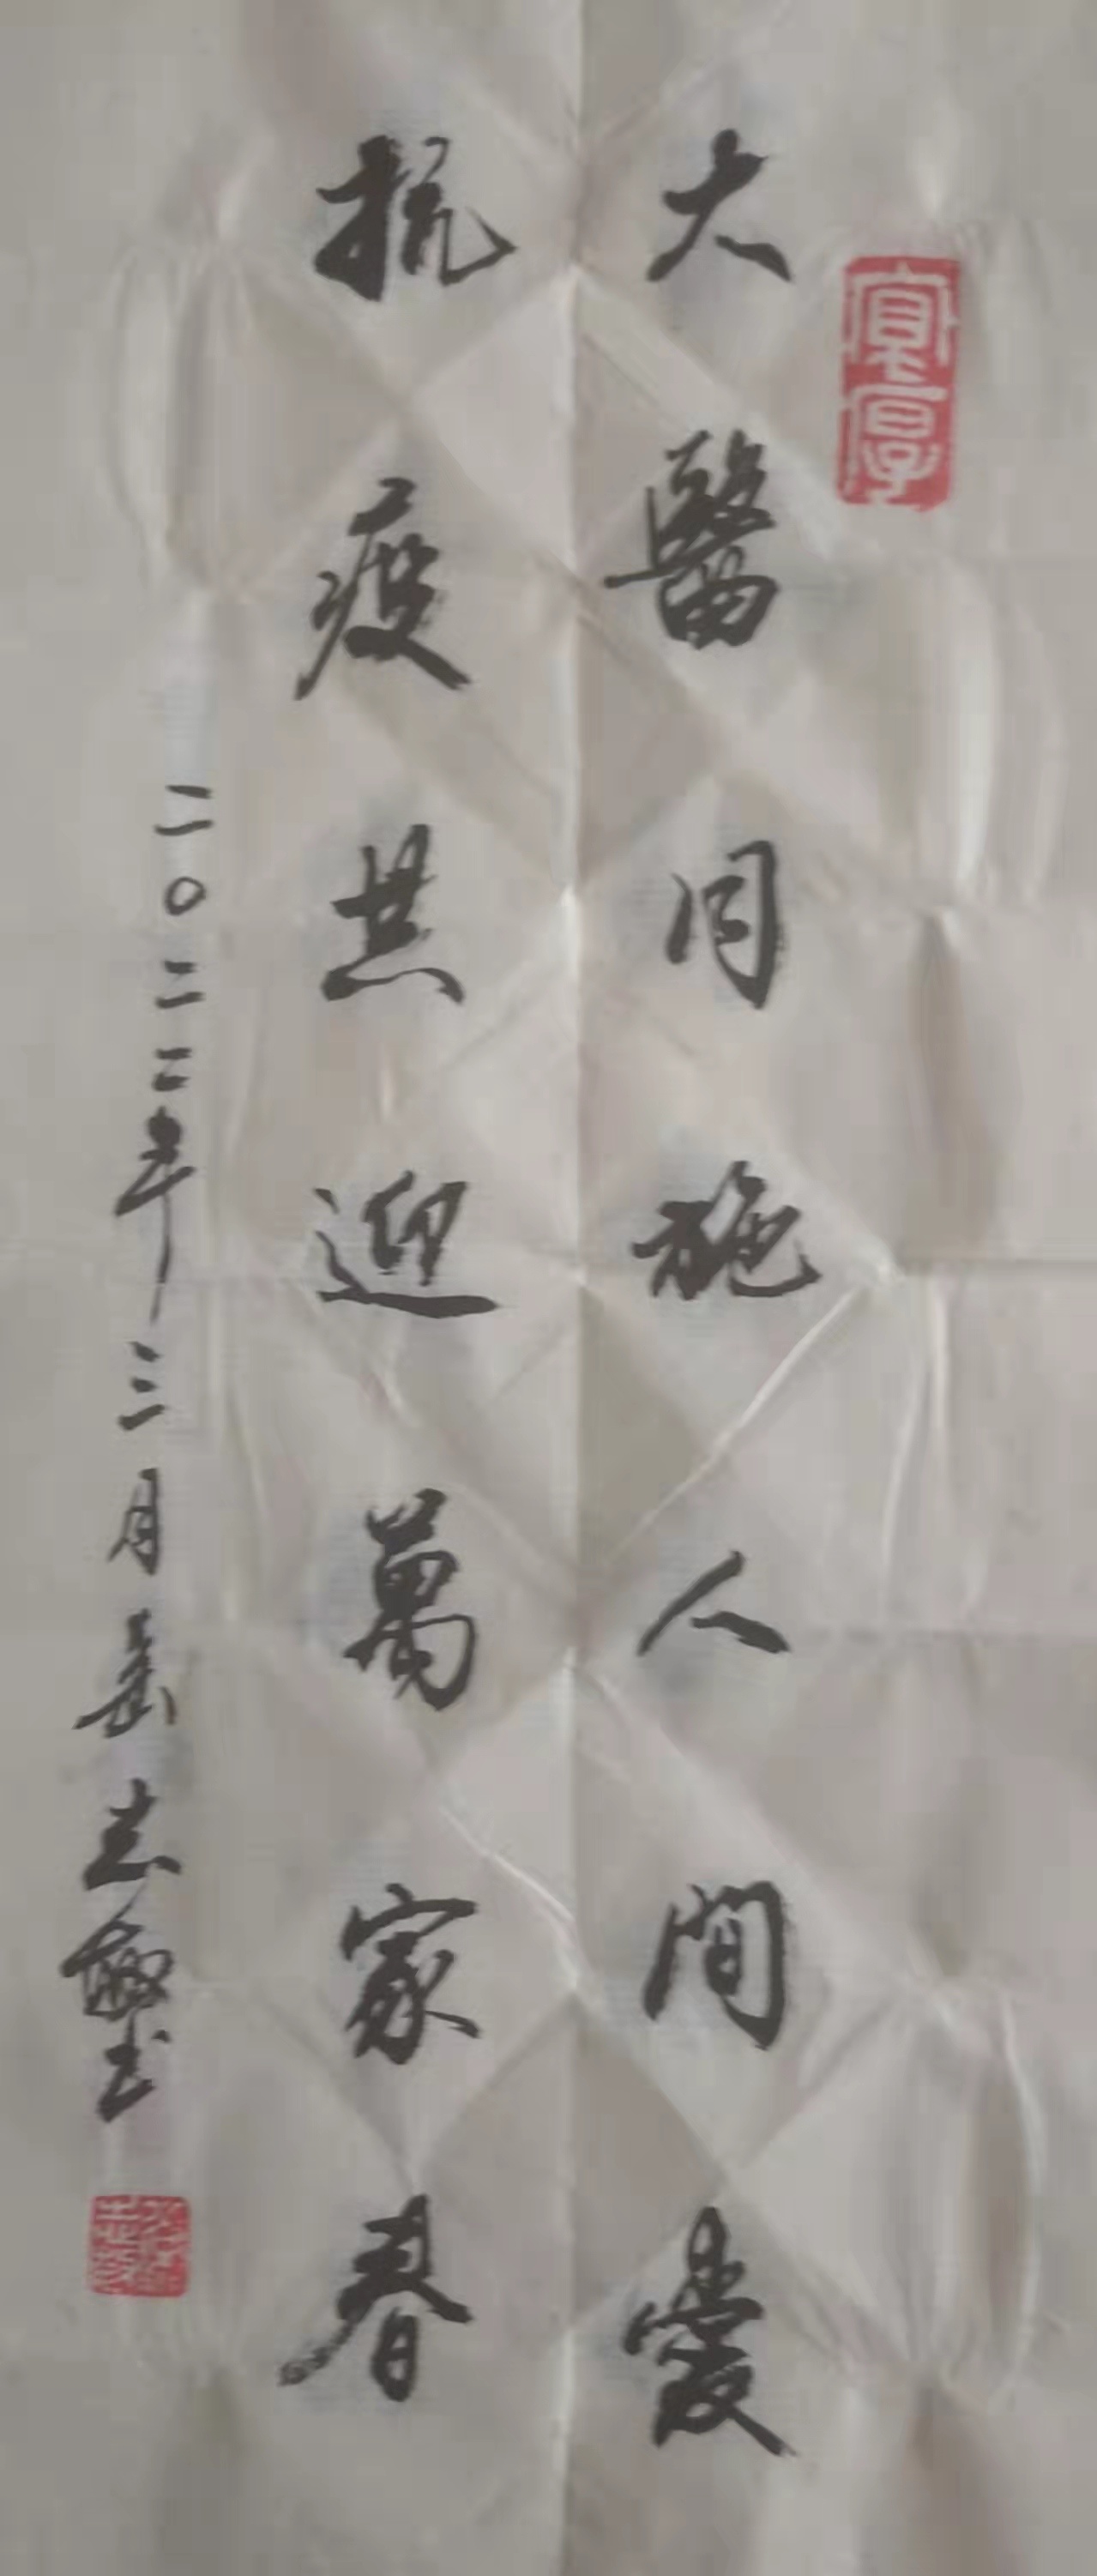 大醫同施人間愛
抗疫共迎萬家春
二〇二二年三月岳志敏书